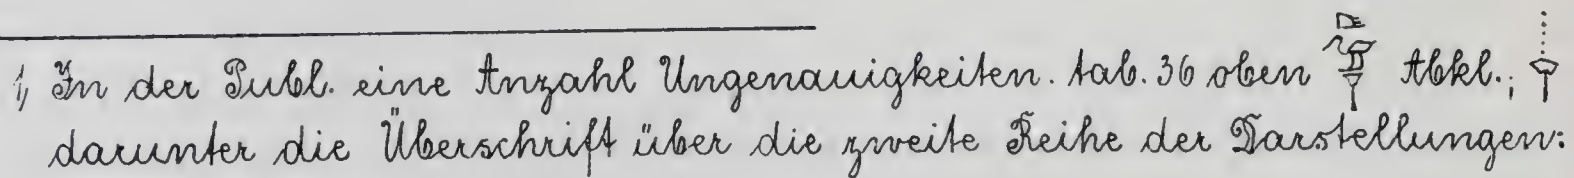 1, In der Publ. eine Anzahl Ungenauigkeiten. tab. 36 oben Abkl.;
darunter die Überschrift über die zweite Reihe der Darstellungen: